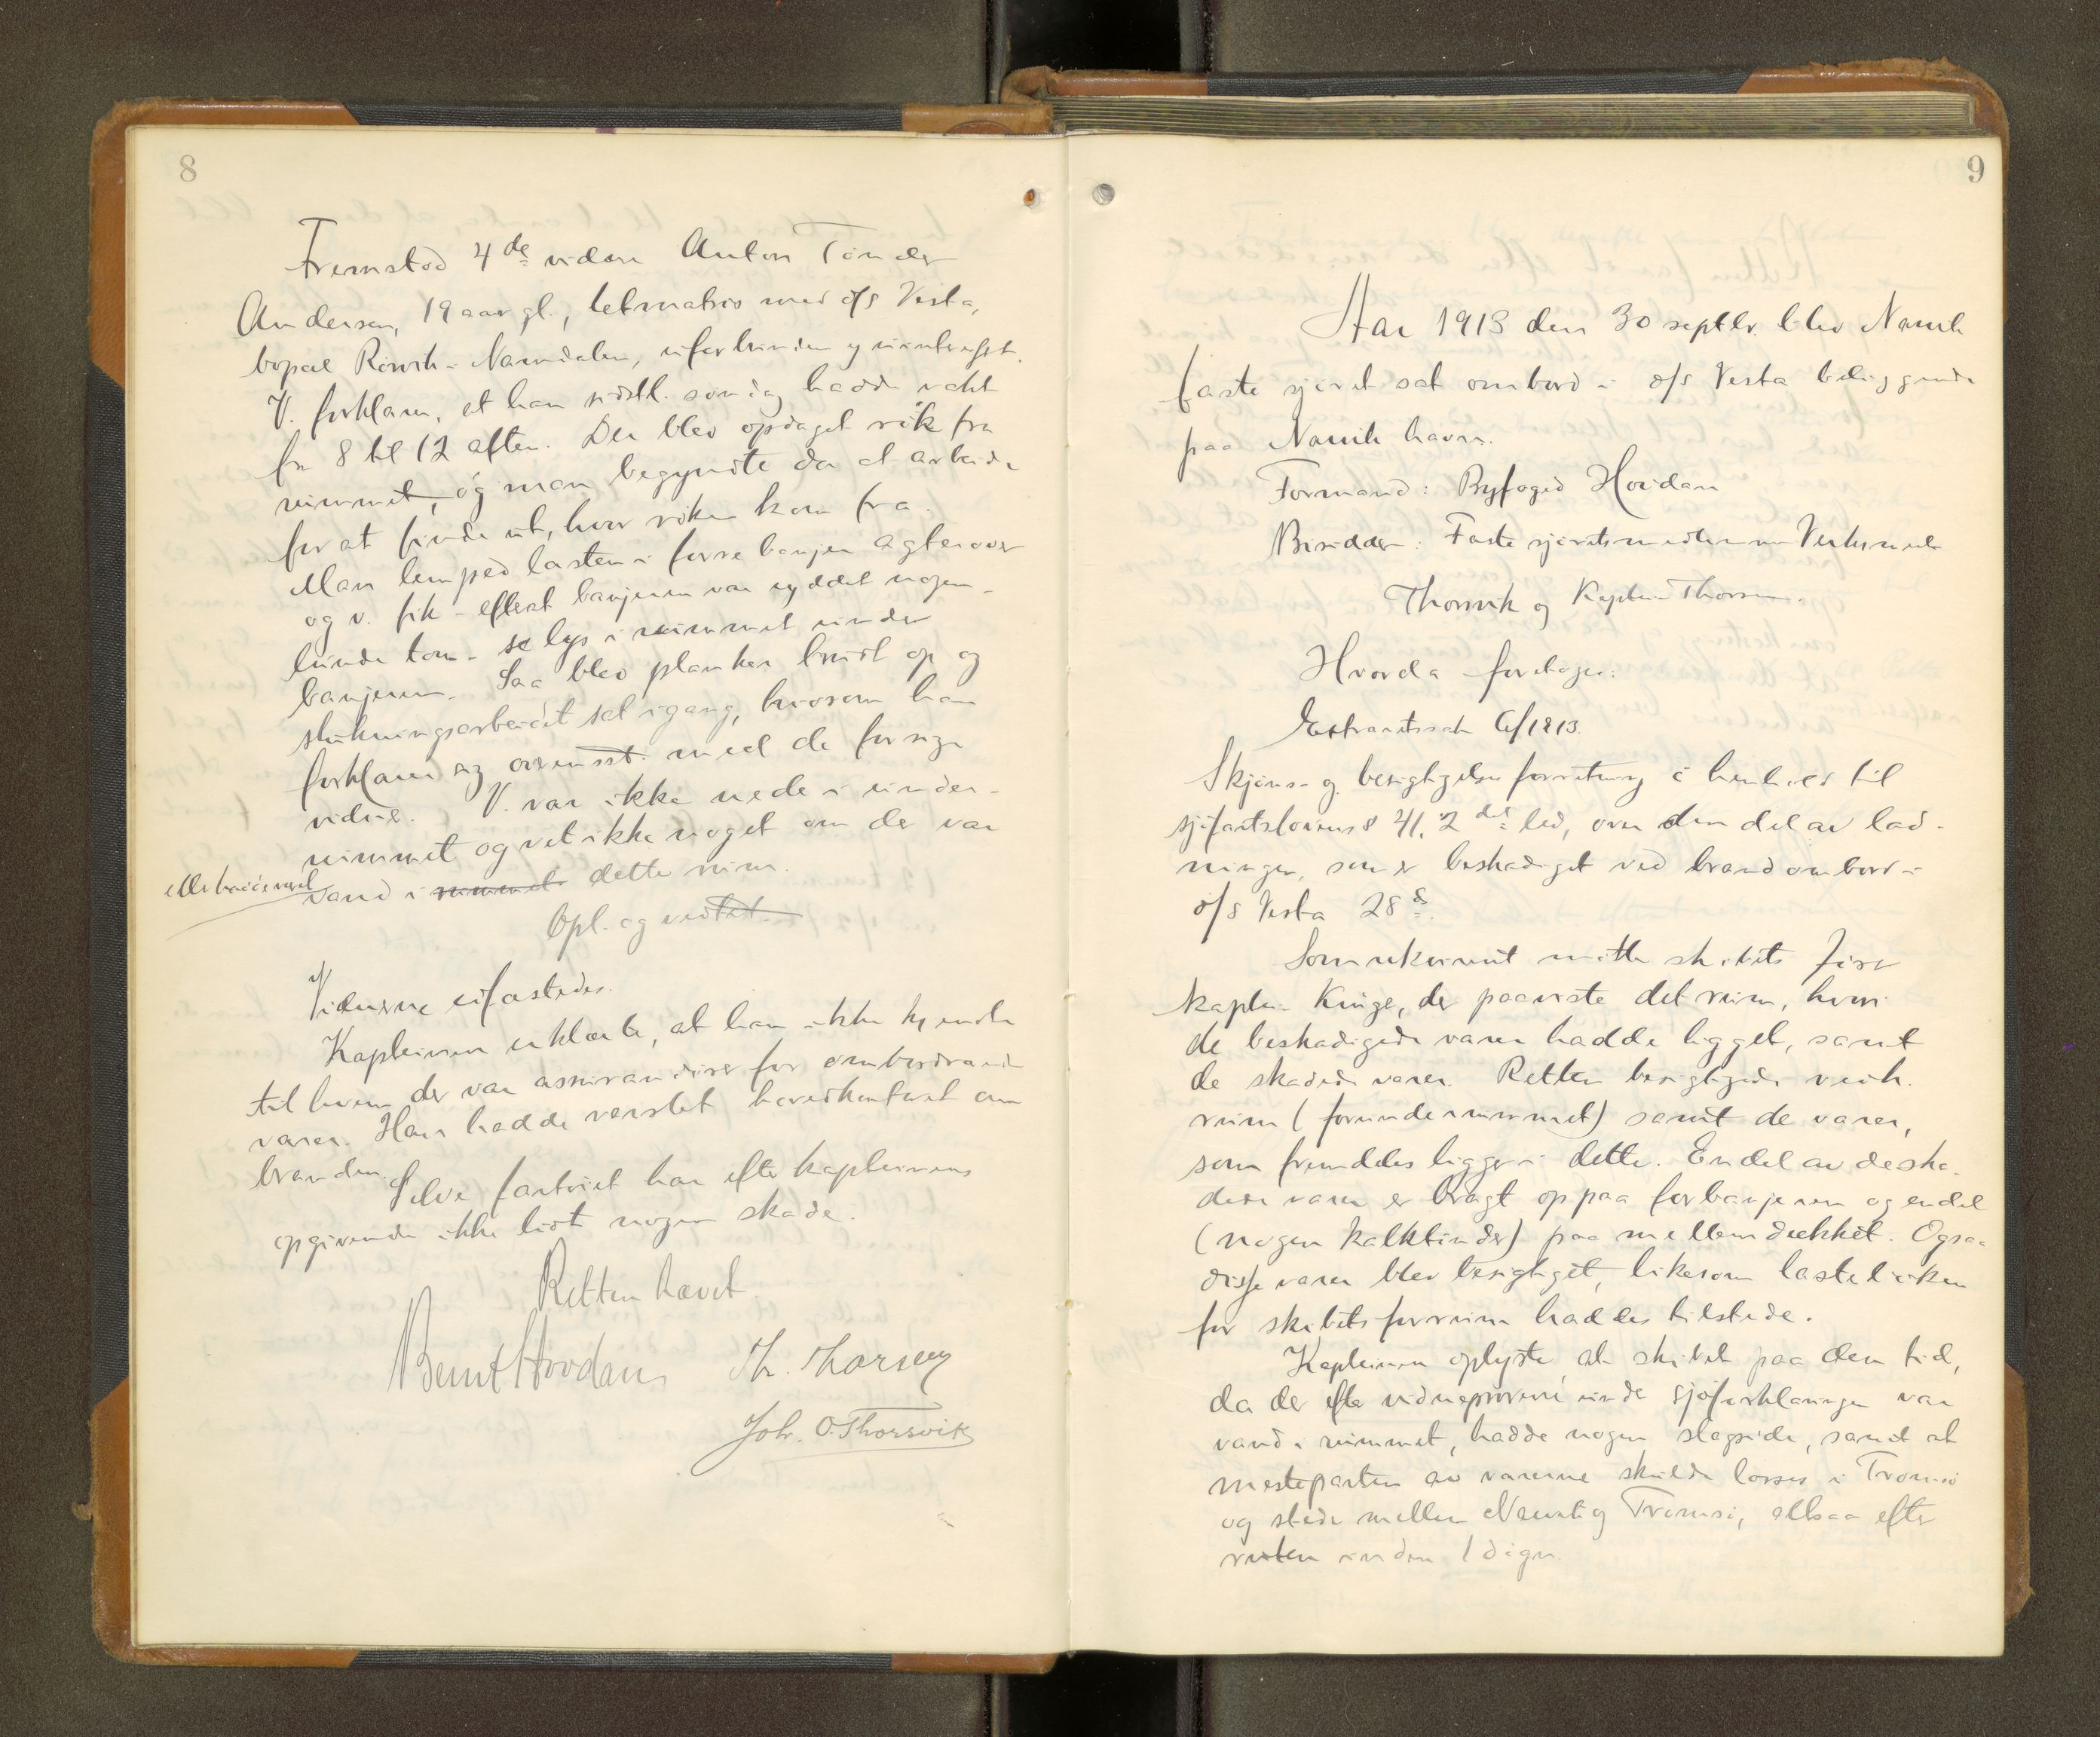 8
Fremstod 4de vidne Anton Tönder
Andersen, 19 aar gl., letmatros med d/s Vesta,
bopæl Rörvik - Namdalen, uforbunden og uinteresst.
V. forklarer, at han sidstl. søndag hadde vakt
fra 8 til 12 aften. Der blev opdaget røk fra
rummet, og man begyndte da at arbeide
for at finde ut, hvor røken kom fra.
Man lemped lasten i forre banjer agterover
og v. fik - efterat banjeren var ryddet nogen-
lunde tom - se lys i rummet under
banjeren. Saa blev planker brudt op og
slukningsarbeidet sat igang, hvorom han
forklarer sig overensst. med de forrige
vidner. V. var ikke nede i under-
rummet og vet ikke noget om der var
eller hadde været
vand i rummet dette rum.
Opl. og vedtat.
Vidnerne eifæstedes.
Kapteinen erklærte, at han ikke kjendte
til hvem der var assurandører for ombordværende
varer. Han hadde varslet hovedkontoret om
branden.
Selve fartøiet har efter kapteinens
opgivende ikke lidt nogen skade.
Retten hævet.
Bernt Hovdan Th. Thorsen
Joh. O. Thorsvik
9
Aar 1913 den 30 septbr. blev Narvik
faste sjøret sat ombord i d/s Vesta beliggende
paa Narvik havn.
Formand: Byfoged Hovdan
Bisidder: Faste sjøretsmedlemmer
Thorsvik og Kaptein Thorsen.
Hvorda foretoges:
Extraretssak 6/1913.
Skjøns- og besigtigelsesforretning i henhold til
sjøfartslovens § 41, 2 det led, over den del av lad-
ningen, som er beskadiget ved brand ombord i
d/s Vesta 28 d.
Som rekvirent møtte skibets fører
kaptein Kinge, der paaviste det rum, hvori
de beskadigede varer hadde ligget, samt
de skadede varer. Retten besigtigede vedk.
rum (forunderrummet) samt de varer,
som fremdeles ligger i dette. Endel av de ska-
dede varer er bragt op paa forbanjeren og endel
(nogen kalktønder) paa mellemdækket. Ogsaa
disse varer blev besigtiget, likesom lasteluken
for skibets forrum haddes tilstede.
Kapteinen oplyste at skibet paa den tid,
da der efter vidneprovene under sjøforklaringen var
vand i rummet, hadde nogen slagside, samt at
mesteparten av varerne skulde losses i Tromsø
og steder mellem Narvik og Tromsø, altsaa efter
ruten inden 1 døgn.